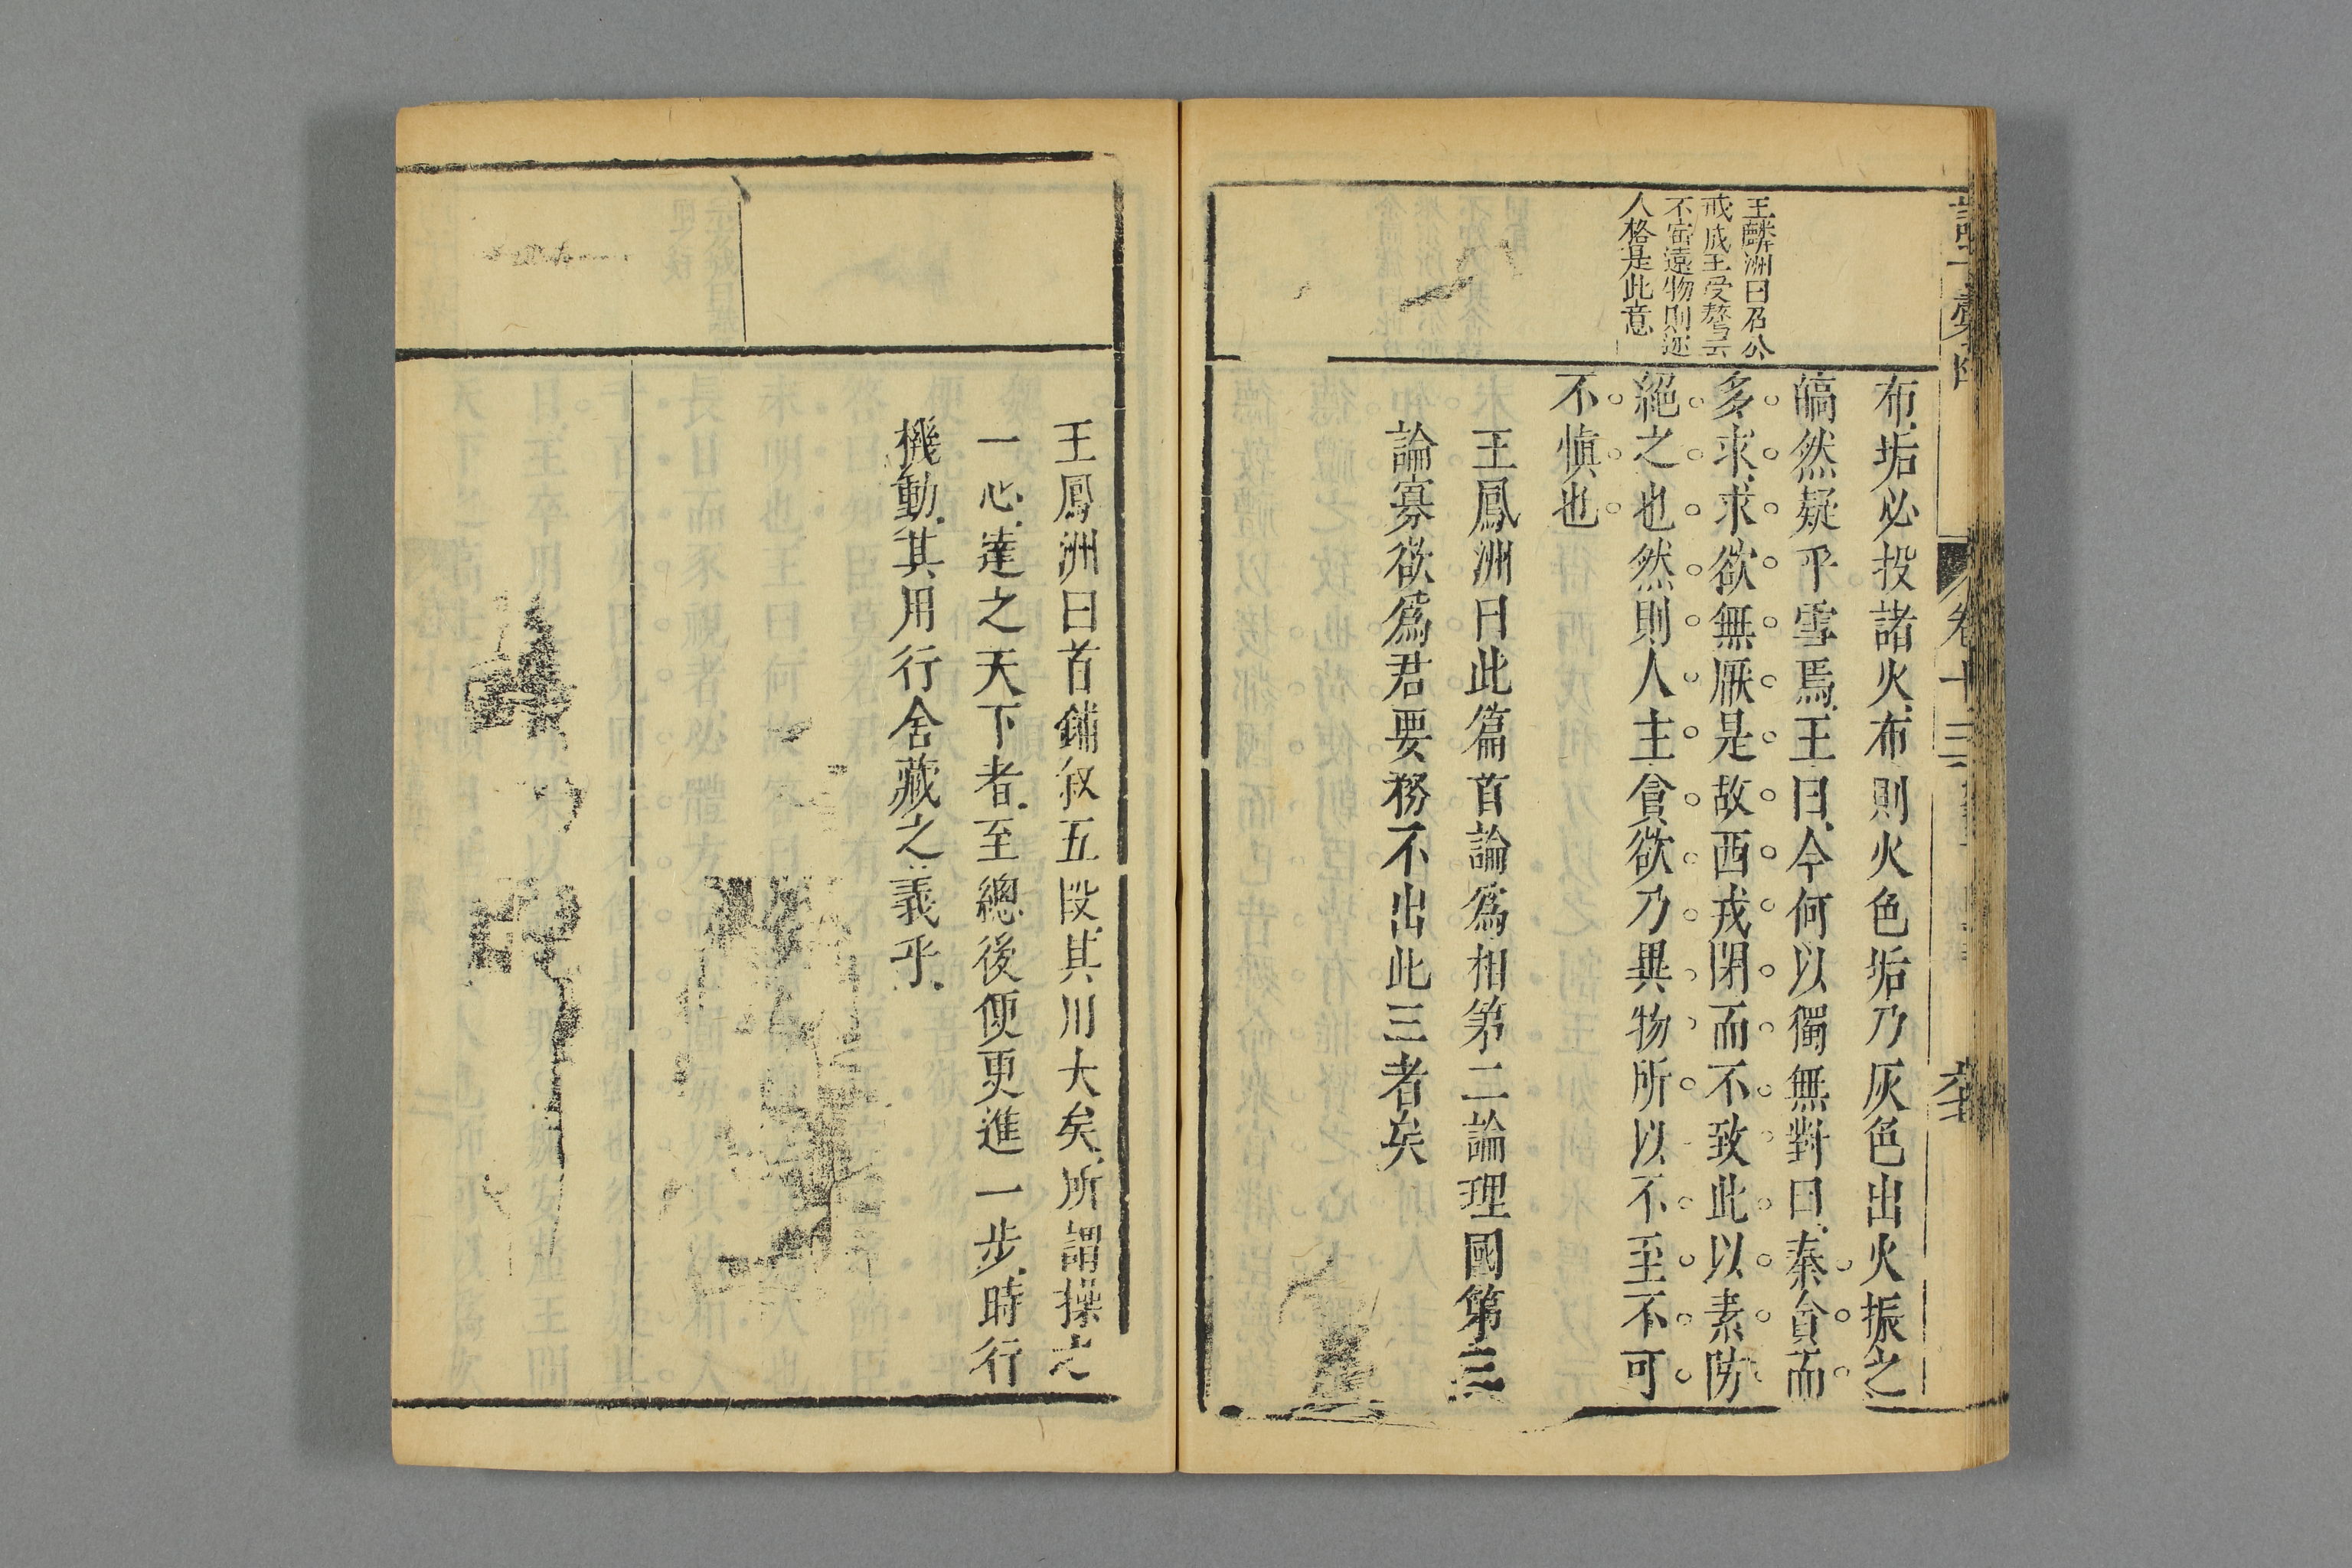 王麟洲曰召公
戒成王受獒云
不寶遠物則遠
人格是此意
布垢必投諸火布則火色垢乃灰色出火振之
皜然疑乎雪焉王曰今何以獨無對曰秦貪而
多求求欲無厭是故西戎閉而不致此以素防
絕之也然則人主貪欲乃異物所以不至不可
不慎也
王鳳洲曰此篇首論為相第二論理國第三
論寡欲爲君要務不出此三者矣
卷十三
王鳳洲曰首鋪叙五段其川大矣所謂操之
一心達之天下者至總後便更進一步時行
機動其用行舍藏之義乎